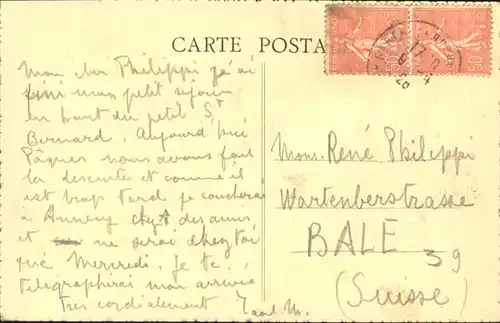 CARTE POSTA
Mon cher Philippi j'ai
fini mon petit séjour
en haut du petit St
Bernard. Aujourd'hui
Pâques nous avons fait
la descente et comme il
est trop tard je coucherai
à Annecy chez des amis
et ne serai chez toi
que Mercredi. Je te
télégraphierai mon arrivée
Très cordialement
Mons. René Philippi
Wartenberstrasse
BALE 39
(Suisse)
50
50